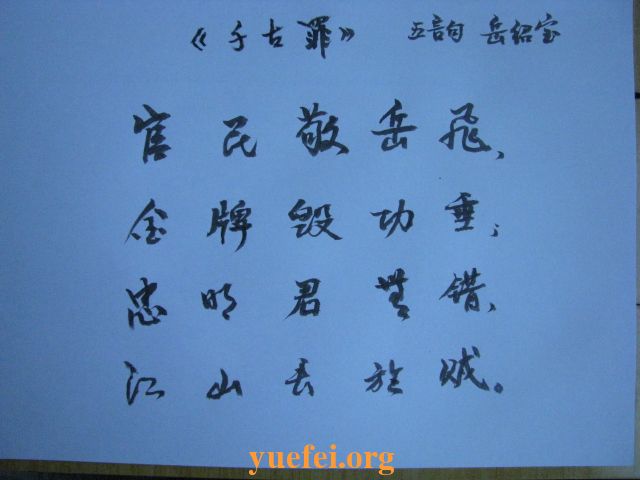 《千古罪》 五言句 岳绍宝
官民敬岳飛、
金牌毁功垂；
忠明君無错、
江山丢於贼。
yuefei.org